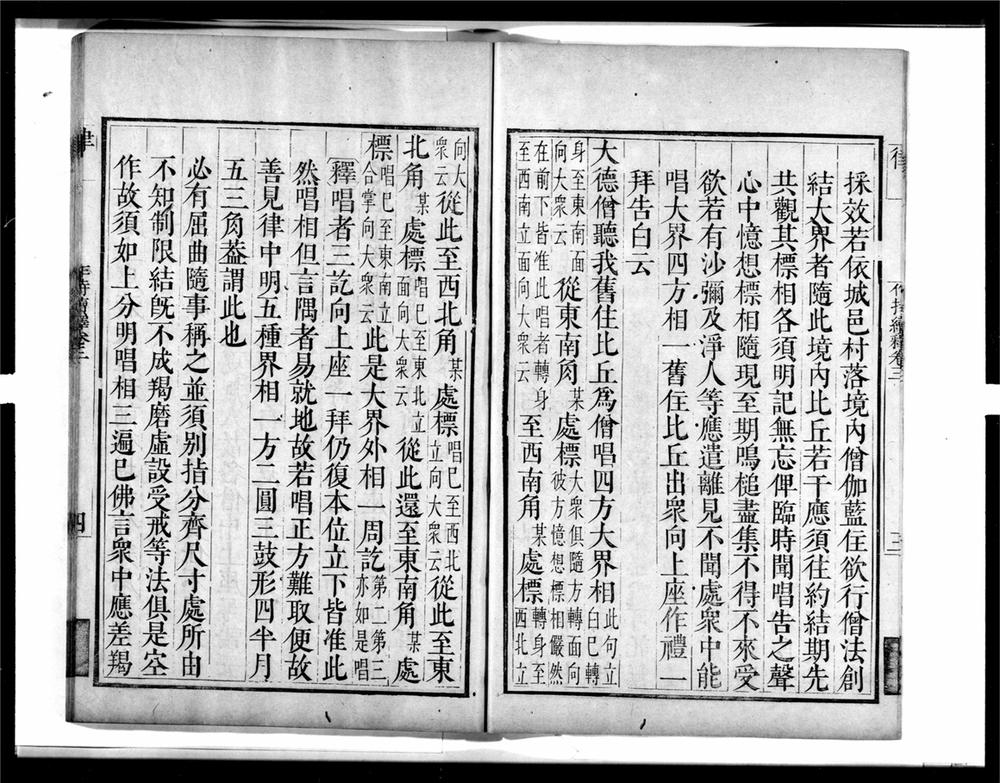 採效若依城邑村落境內僧伽藍住欲行僧法創
結大界者隨此境內比丘若干應須往約結期先
共觀其標相各須明記無忘俾臨時聞唱告之聲
心中憶想標相隨現至期鳴槌盡集不得不來受
欲若有沙彌及淨人等應遣離見不聞處衆中能
唱大界四方相一舊住比丘出衆向上座作禮一
拜告白云
大德僧聽我舊住比丘爲僧唱四方大界相此句立白已轉
身至東南面向大衆云從東南角某處標大衆俱隨方轉面向彼方憶想標相儼然
在前下皆准此唱者轉身至西南立面向大衆云至西南角某處標轉身至西北立
向大衆云從此至西北角某處標唱已至西北立向大衆云從此至東
北角某處標唱已至東北立面向大衆云從此還至東南角某處
標唱已至東南立合掌向大衆云此是大界外相一周訖第二第三亦如是唱
釋唱者三訖向上座一拜仍復本位立下皆准此
然唱相但言隅者易就地故若唱正方難取便故
善見律中明五種界相一方二圓三鼓形四半月
五三角葢謂此也
必有屈曲隨事稱之並須别指分齊尺寸處所由
不知制限結旣不成羯磨虛設受戒等法俱是空
作故須如上分明唱相三遍已佛言衆中應差羯
作持續釋卷三
三
四